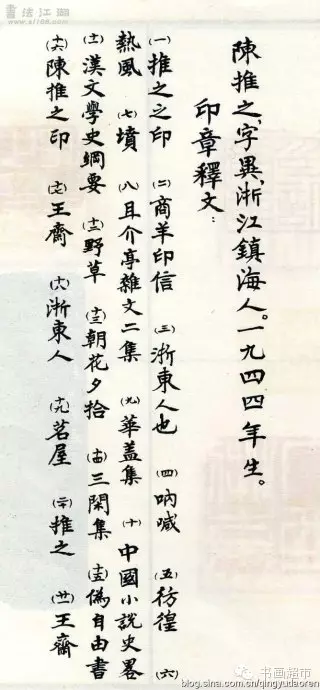 書法江湖
陳推之,字異,浙江鎮海人。一九四四年生。
印章釋文:
(一)推之之印 (二)商羊印信 (三)浙東人也 (四)吶喊 (五)彷徨 (六)
熱風 (七)墳 (八)且介亭雜文二集 (九)華盖集 (十)中國小說史畧
(十一)漢文學史綱要 (十二)野草 (十三)朝花夕拾 (十四)三閑集 (十五)偽自由書
(十六)陳推之印 (十七)王齋 (十八)浙東人 (十九)茗屋 (二十)推之 (廿一)王齋
书画超市
blog.sina.com.cn/qingyudaoren